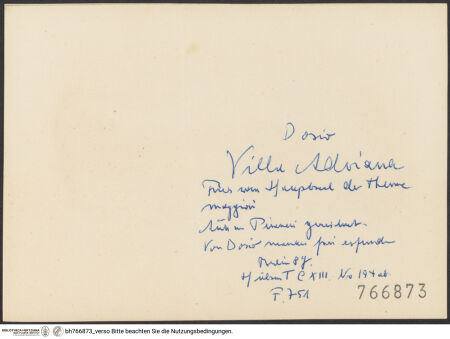 Dosio
Villa Adriana
Fries vom Hauptsaal der Therme
maggiori
Auch von Piranesi gezeichnet.
Von Dosio manches frei erfunden
Berlin 87.
Hülsen T C XIII. No 194 ab.
F. 751
766873
BIBLIOTHECA HERTZIANA
bh766873_verso Bitte beachten Sie die Nutzungsbedingungen.